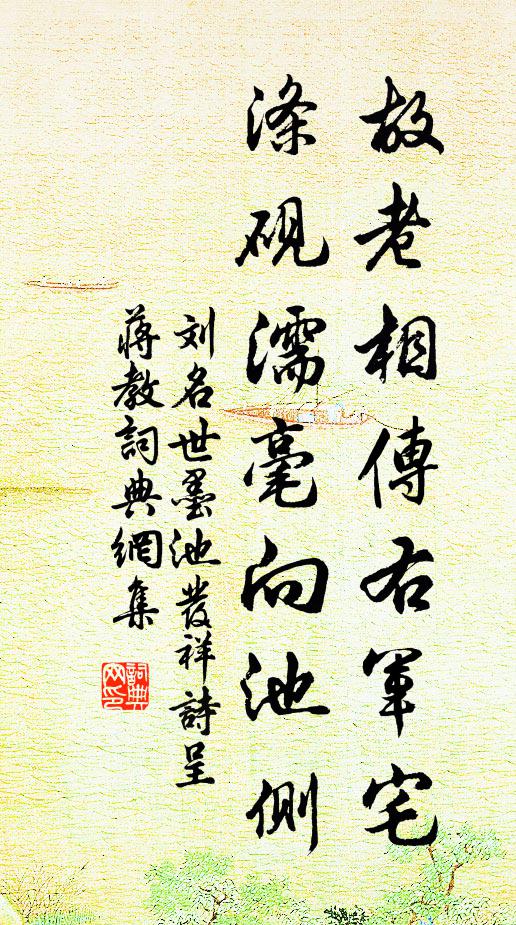 故老相傳右軍宅
滌硯濡毫向池側
刘名世墨池發祥詩呈
蔣教詞典網集
詞典网印